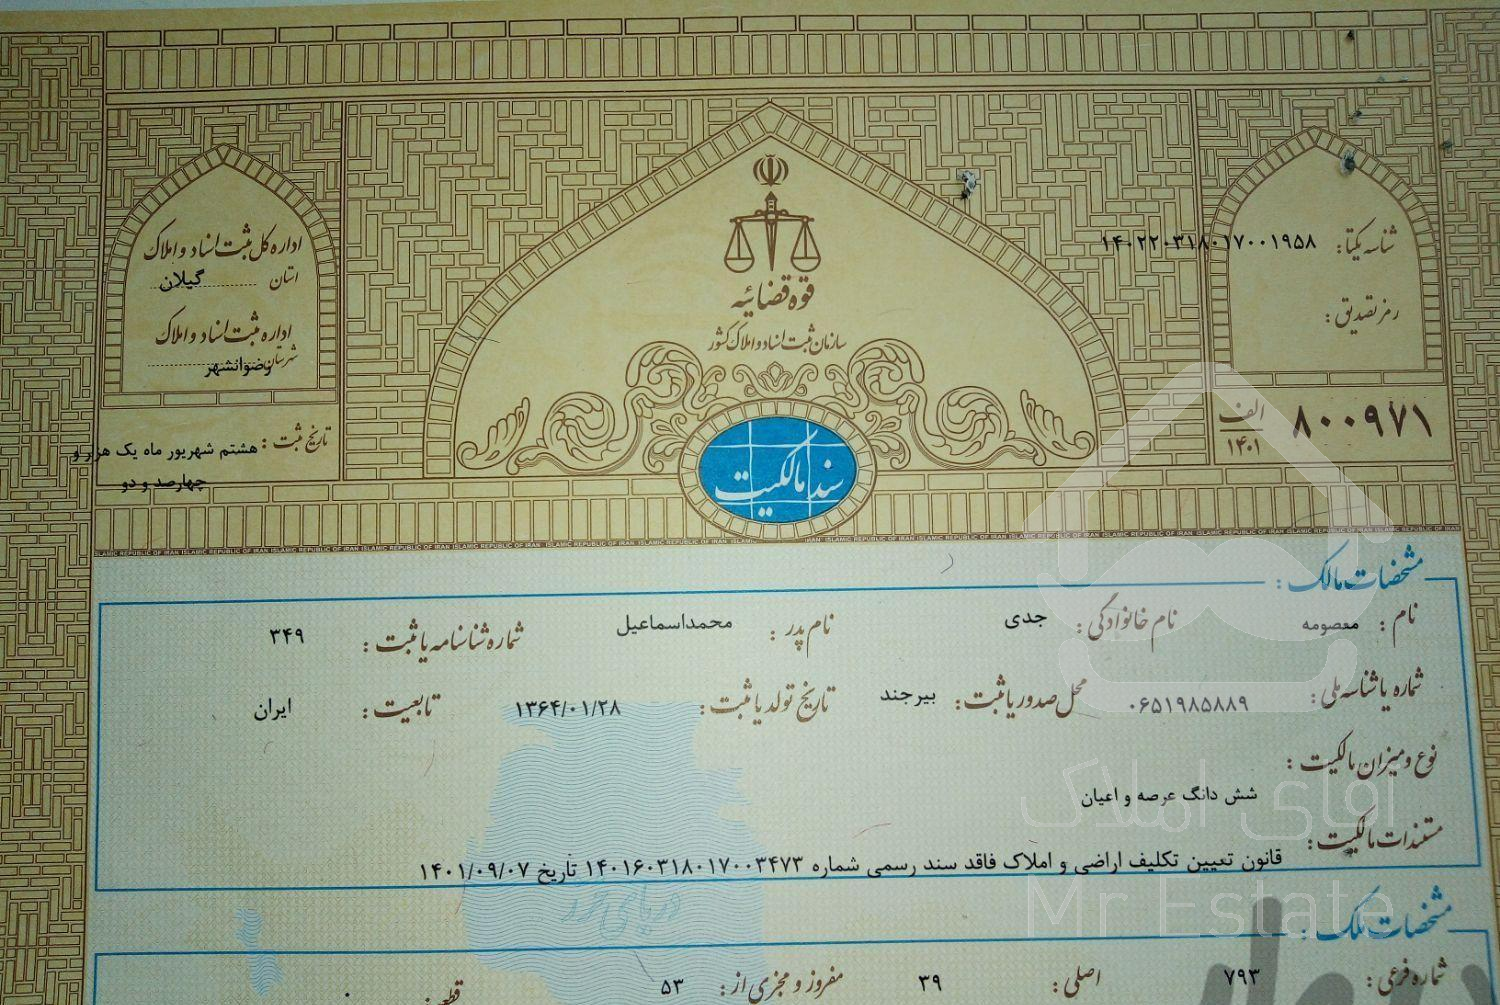 اداره کل ثبت اسناد و املاک
استان گیلان
اداره ثبت اسناد و املاک
شهرستان رضوانشهر
تاریخ ثبت : هشتم شهریور ماه یک هزار و
چهارصد و دو
قوه قضائیه
سازمان ثبت اسناد و املاک کشور
سند مالکیت
شناسه یکتا: ۱۴۰۲۲۰۳۱۸۰۱۷۰۰۱۹۵۸
رمز تصدیق :
۸۰۰۹۷۱ الف
۱۴۰۱
ISLAMIC REPUBLIC OF IRAN ISLAMIC REPUBLIC OF IRAN ISLAMIC REPUBLIC OF IRAN
مشخصات مالک :
نام : معصومه نام خانوادگی : جدی نام پدر : محمداسماعیل شماره شناسنامه یا ثبت : ۳۴۹
شماره یا شناسه ملی : ۰۶۵۱۹۸۵۸۸۹ محل صدور یا ثبت : بیرجند تاریخ تولد یا ثبت : ۱۳۶۴/۰۱/۲۸ تابعیت : ایران
نوع و میزان مالکیت :
شش دانگ عرصه و اعیان
مستندات مالکیت :
قانون تعیین تکلیف اراضی و املاک فاقد سند رسمی شماره ۱۴۰۱۶۰۳۱۸۰۱۷۰۰۳۴۷۳ تاریخ ۱۴۰۱/۰۹/۰۷
دریای خزر
مشخصات ملک :
شماره فرعی : ۷۹۳ اصلی : ۳۹ مفروز و مجزی از : ۵۳ قطعه : ۰
آقای املاک
Mr Estate